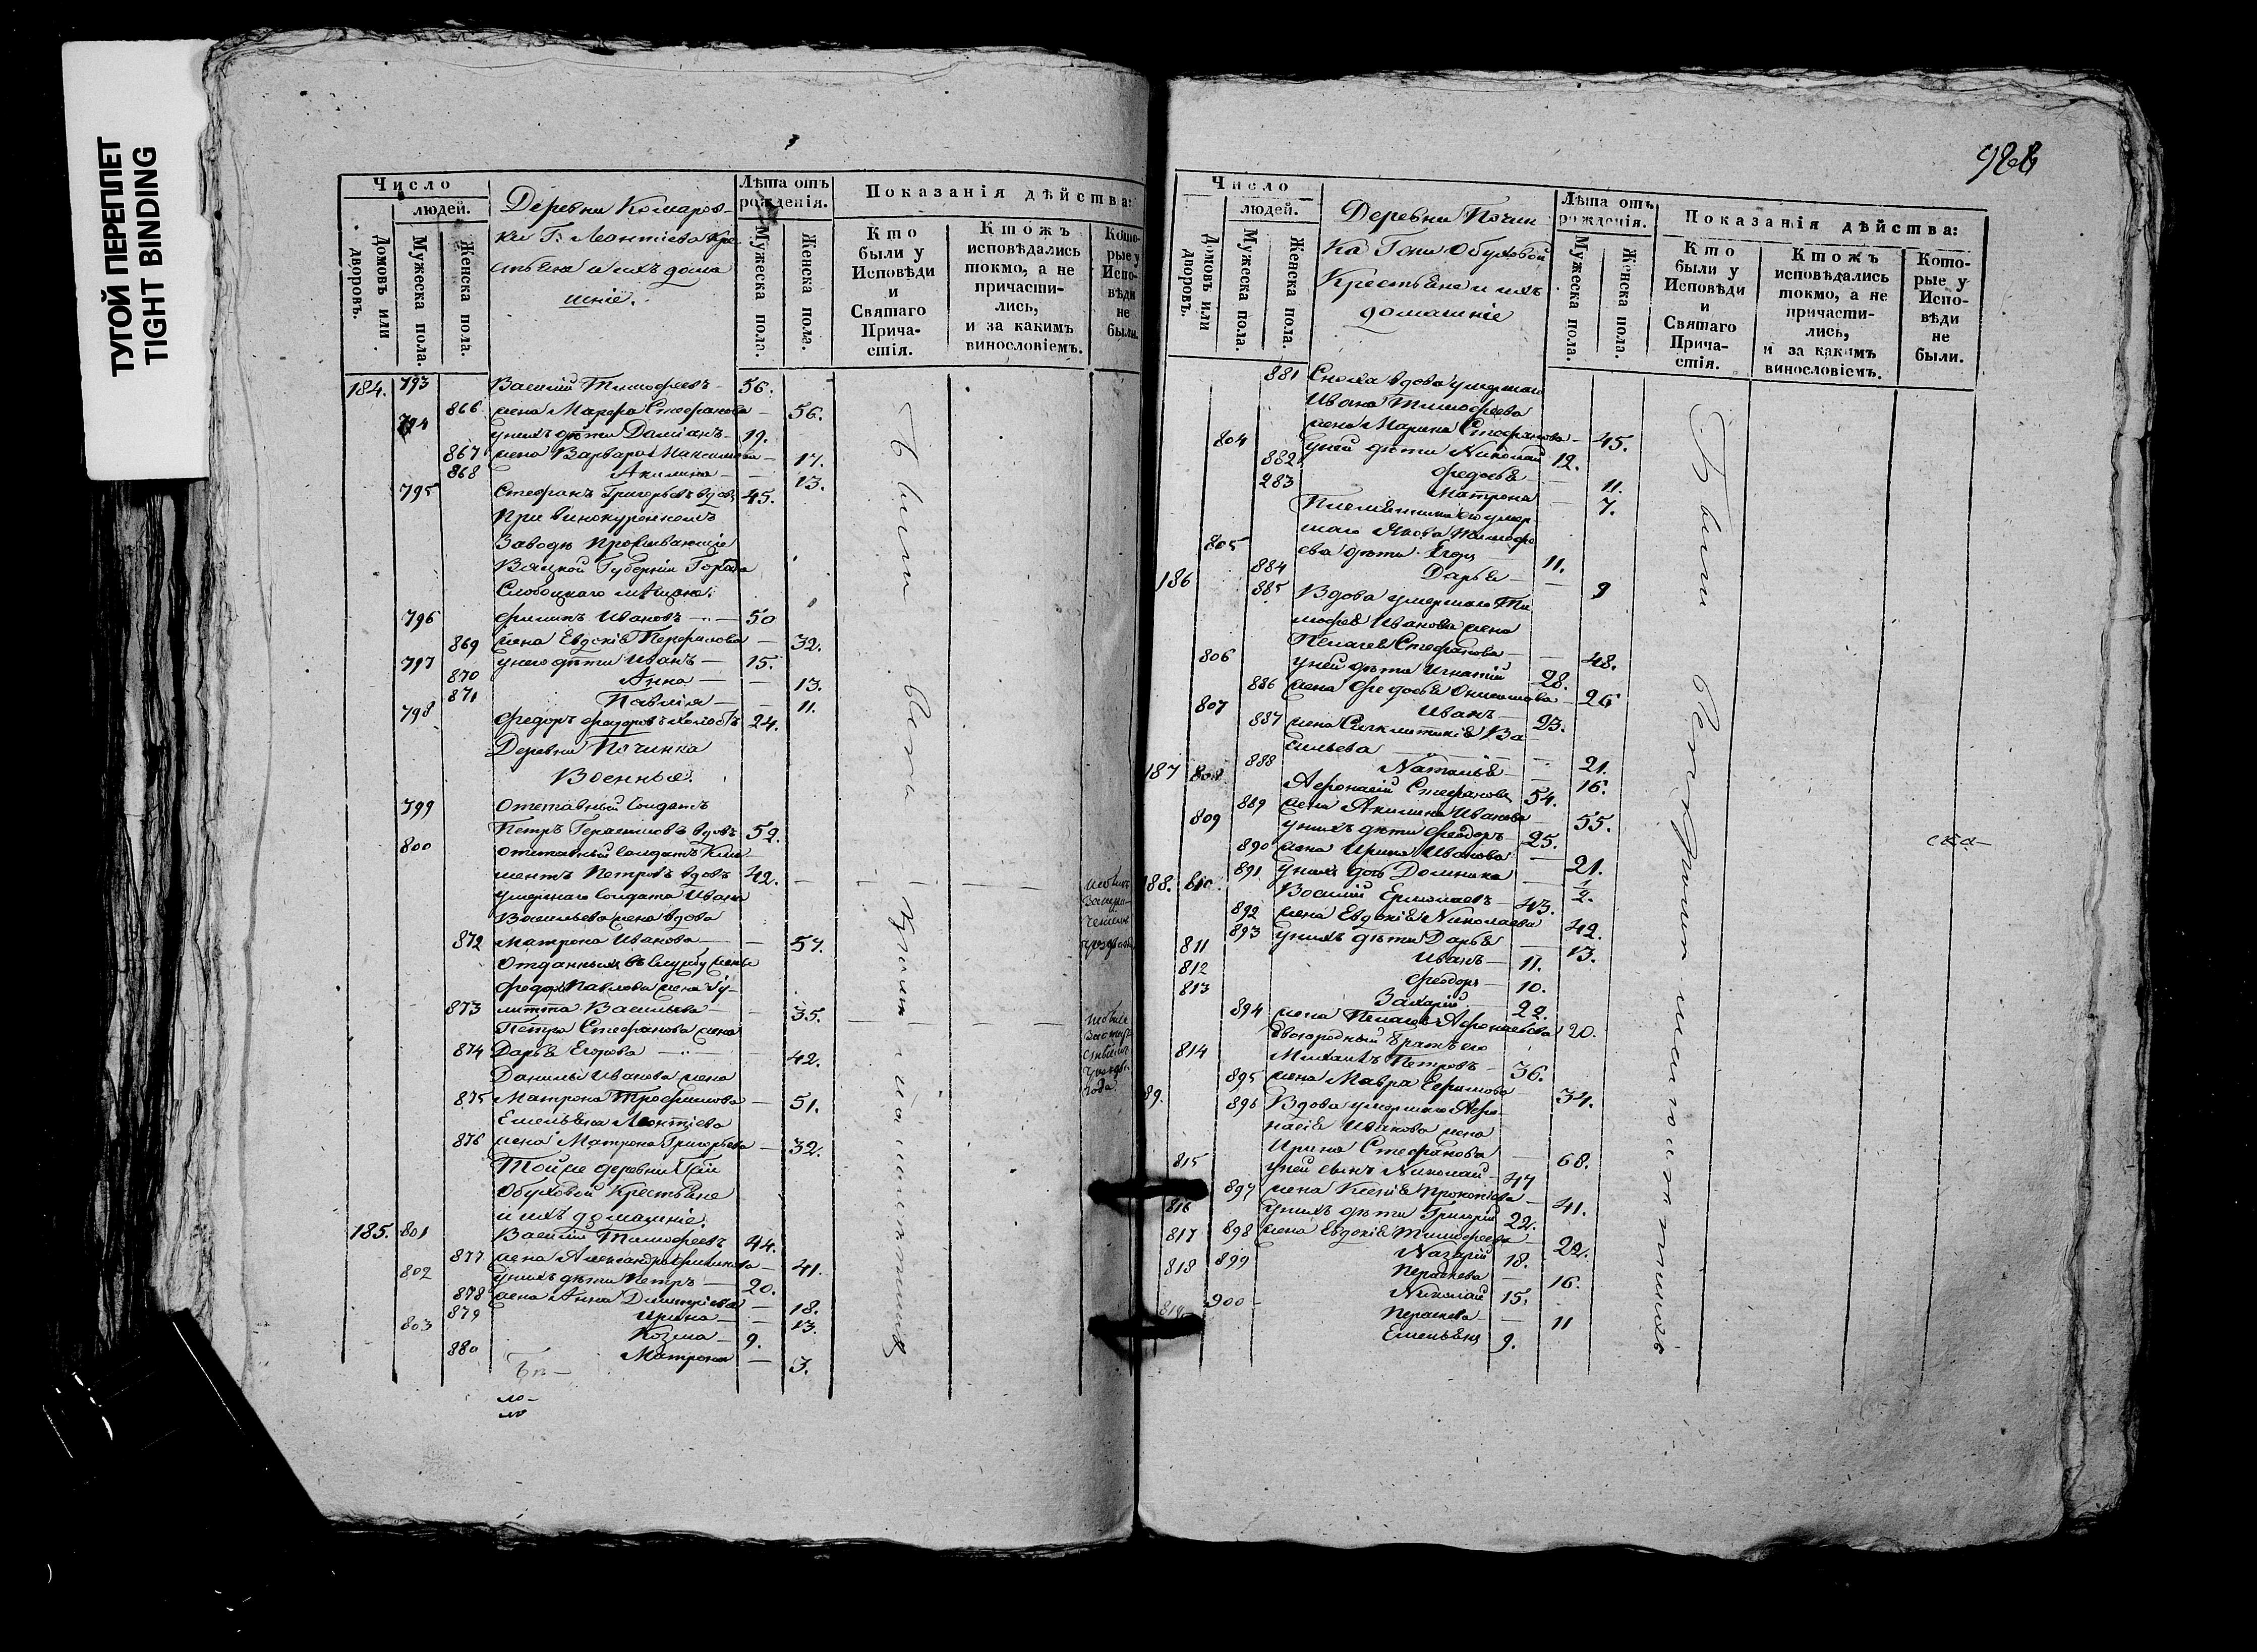 ТУГОЙ ПЕРЕПЛЕТ
TIGHT BINDING
Число
людей.
Домовъ или дворовъ.
Мужеска пола.
Женска пола.
Деревни Комаров-
ки Г. Леонтіева Кре
стьяне и ихъ дома
шніе.
Лѣта отъ рожденія.
Мужеска пола.
Женска пола.
Показанія дѣйства:
Кто были у Исповѣди и Святаго Причастія.
Ктожъ исповѣдались токмо, а не причастились, и за какимъ винословіемъ.
Которые у Исповѣди не были.
184. 793 Василій Тимофеевъ 56.
866 жена Марфа Стефанова 56.
794 у нихъ дѣти Даміанъ 19.
867 жена Варвара Максимова 17.
868 Акилина 13.
795 Стефанъ Григорьевъ вдовъ 45.
При винокуренномъ
Заводѣ проживающіе
Вятской Губерніи Города
Слободскаго мѣщане.
796 Филипъ Ивановъ 50
869 жена Евдокія Перфилова 32.
797 у него дѣти Иванъ 15.
870 Анна 13.
871 Павлія 11.
798 Федоръ Федоровъ холостъ 24.
Деревни Починка
Военныя.
799 Отставный солдатъ
Петръ Герасимовъ вдовъ 52.
800 отставный солдатъ Кли
ментъ Петровъ вдовъ 42.
умершаго солдата Ивана
Васильева жена вдова
872 Матрона Иванова 57.
Отданныхъ въ службу жены
Федора Павлова жена Гу-
873 литта Васильева 35.
Петра Стефанова жена
874 Дарья Егорова 42.
Данилы Иванова жена
875 Матрона Трофимова 51.
Емельяна Леонтіева
876 жена Матрона Григорьева 32.
Тойже деревни Гаи
Обуховой Крестьяне
и ихъ домашніе.
185. 801 Василій Тимофеевъ 44.
877 жена Александра Филипова 41.
802 у нихъ дѣти Петръ 20.
878 жена Анна Димитріева 18.
879 Ирина 13.
803 Козма 9.
880 Матрона 3.
Были у исповѣди и святаго причастія
988
Число
людей.
Домовъ или дворовъ.
Мужеска пола.
Женска пола.
Деревни Почин
ка Гаи Обуховой
Крестьяне и ихъ
домашніе
Лѣта отъ рожденія.
Мужеска пола.
Женска пола.
Показанія дѣйства:
Кто были у Исповѣди и Святаго Причастія.
Ктожъ исповѣдались токмо, а не причастились, и за какимъ винословіемъ.
Которые у Исповѣди не были.
881 Сноха вдова умершаго
Ивана Тимофеева
жена Марина Стефанова 45.
804 у ней дѣти Николай 12.
882 Федосья 11.
283 Матрона 7.
Племянники его умер
шаго Якова Тимофе
805 ева дѣти Егоръ 11.
884 Дарья 9
186 885 Вдова умершаго Ти
мофея Иванова жена
Пелагея Стефанова 48.
806 у ней дѣти Игнатій 28.
886 жена Федосья Онисимова 26
807 Иванъ 23.
887 жена Синклитикія Ва
сильева 21.
888 Наталья 16.
187 808 Афонасій Стефановъ 54.
889 жена Акилина Иванова 55.
809 у нихъ дѣти Феодоръ 25.
890 жена Ирина Иванова 21.
891 у нихъ дочь Домника 1/2.
188. 810 Василій Ермолаевъ 43.
892 жена Евдокія Николаева 42.
893 у нихъ дѣти Дарья 13.
811 Иванъ 11.
812 Феодоръ 10.
813 Захарій 22.
894 жена Пелагея Афонасьева 20.
двоюродный братъ его
814 Михаилъ Петровъ 36.
895 жена Мавра Ефимова 34.
89. 896 Вдова умершаго Афо-
насія Иванова жена
Ирина Стефанова 68.
815 у ней сынъ Николай 47
897 жена Ксенія Прокопіева 41.
816 у нихъ дѣти Григорій 22.
817 898 жена Евдокія Тимофеева 22.
Назарій 18.
818 899 Перасковья 16.
Николай 15.
819 900 Пераскева 11
Емельянъ 9.
ска-